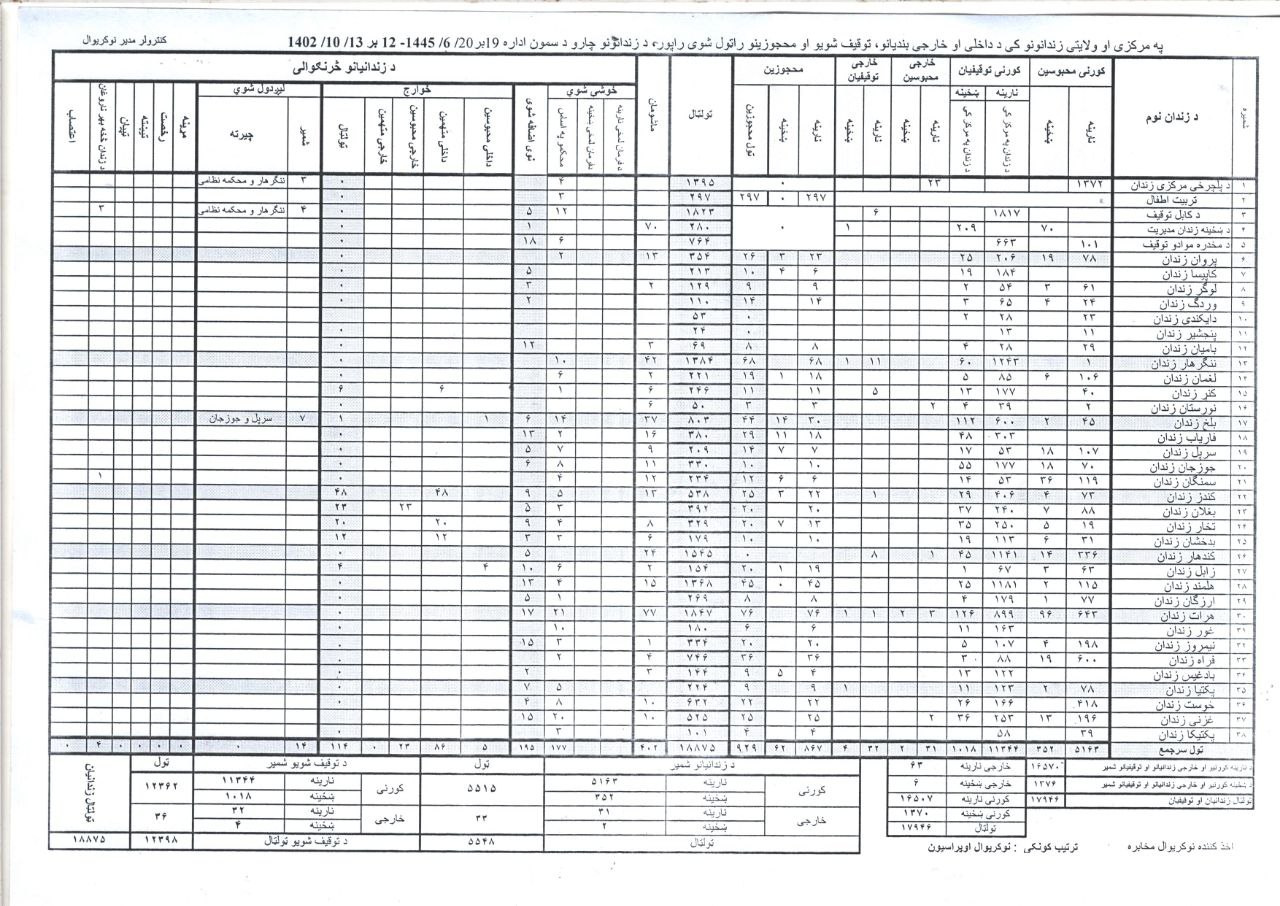 په مرکزي او ولایتي زندانونو کی د داخلی او خارجی بندیانو، توقیف شویو او محجوزینو راټول شوی راپور، د زندانونو چارو د سمون اداره 19بر20/ 6/ 1445- 12 بر 13/ 10/ 1402
کنترولر مدیر نوکریوال
شمیره د زندان نوم کورنی محبوسین کورنی توقیفیان خارجی محبوسین خارجی توقیفیان محجوزین ټولټال ماشومان د زندانیانو څرنګوالی
خوشي شوي نوی اضافه شوی خوارج لیږدول شوي
نارینه ښځینه نارینه ښځینه نارینه ښځینه نارینه ښځینه نارینه ښځینه ټول محجوزین محکمو په اساس داخلی محبوسین داخلی متهمین خارجی محبوسین خارجی متهمین ټولټال شمیر چیرته د زندان څخه بهر ناروغان تیښته رخصت مړینه اعتصاب
۱ د پلچرخی مرکزی زندان ۱۳۷۲ ۲۳ ۰ ۱۳۹۵ ۴ ۰ ۳ ننګرهار و محکمه نظامی
۲ تربیت اطفال ۲۹۷ ۰ ۲۹۷ ۲۹۷ ۳ ۰
۳ د کابل توقیف ۱۸۱۷ ۶ ۱۸۲۳ ۱۲ ۵ ۰ ۴ ننګرهار و محکمه نظامی ۳
۴ د ښځینه زندان مدیریت ۷۰ ۲۰۹ ۱ ۰ ۲۸۰ ۷۰ ۱ ۰
۵ د مخدره موادو توقیف ۱۰۱ ۶۶۳ ۷۶۴ ۶ ۱۸ ۰
۶ پروان زندان ۷۸ ۱۹ ۲۰۶ ۲۵ ۲۳ ۳ ۲۶ ۳۵۴ ۱۳ ۲ ۰
۷ کاپیسا زندان ۱۸۴ ۱۹ ۶ ۴ ۱۰ ۲۱۳ ۵ ۰
۸ لوګر زندان ۶۱ ۳ ۵۴ ۲ ۹ ۹ ۱۲۹ ۲ ۳ ۰
۹ وردګ زندان ۲۴ ۴ ۶۵ ۳ ۱۴ ۱۴ ۱۱۰ ۲ ۰
۱۰ دایکندی زندان ۲۳ ۲۸ ۲ ۰ ۵۳
۱۱ پنجشیر زندان ۱۱ ۱۳ ۰ ۲۴ ۰
۱۲ بامیان زندان ۲۹ ۲۸ ۴ ۸ ۸ ۶۹ ۳ ۱۲ ۰
۱۳ ننګرهار زندان ۱ ۱۲۴۳ ۶۰ ۱۱ ۱ ۶۸ ۶۸ ۱۳۸۴ ۴۲ ۱۰ ۰
۱۴ لغمان زندان ۱۰۶ ۶ ۸۵ ۵ ۱۸ ۱ ۱۹ ۲۲۱ ۲ ۶ ۰
۱۵ کنر زندان ۴۰ ۱۷۷ ۱۳ ۵ ۱۱ ۱۱ ۲۴۶ ۶ ۱ ۶ ۶
۱۶ نورستان زندان ۲ ۳۹ ۴ ۲ ۳ ۳ ۵۰ ۶ ۰
۱۷ بلخ زندان ۴۵ ۲ ۶۰۰ ۱۱۲ ۳۰ ۱۴ ۴۴ ۸۰۳ ۳۷ ۱۴ ۶ ۱ ۱ ۷ سرپل و جوزجان
۱۸ فاریاب زندان ۳۰۳ ۴۸ ۱۸ ۱۱ ۲۹ ۳۸۰ ۱۶ ۲ ۱۳ ۰
۱۹ سرپل زندان ۱۰۷ ۱۸ ۵۳ ۱۷ ۷ ۷ ۱۴ ۲۰۹ ۹ ۷ ۵ ۰
۲۰ جوزجان زندان ۷۰ ۱۸ ۱۷۷ ۵۵ ۱۰ ۱۰ ۳۳۰ ۱۱ ۸ ۶ ۰
۲۱ سمنګان زندان ۱۱۹ ۳۶ ۵۳ ۱۴ ۶ ۶ ۱۲ ۲۳۴ ۱۲ ۴ ۰ ۱
۲۲ کندز زندان ۷۳ ۴ ۴۰۶ ۲۹ ۱ ۲۲ ۳ ۲۵ ۵۳۸ ۱۳ ۵ ۹ ۴۸ ۴۸
۲۳ بغلان زندان ۸۸ ۷ ۲۴۰ ۳۷ ۲۰ ۲۰ ۳۹۲ ۳ ۵ ۲۳ ۲۳
۲۴ تخار زندان ۱۹ ۵ ۲۵۰ ۳۵ ۱۳ ۷ ۲۰ ۳۲۹ ۸ ۴ ۹ ۲۰ ۲۰
۲۵ بدخشان زندان ۳۱ ۶ ۱۱۳ ۱۹ ۱۰ ۱۰ ۱۷۹ ۶ ۳ ۳ ۱۲ ۱۲
۲۶ کندهار زندان ۳۳۶ ۱۴ ۱۱۴۱ ۴۵ ۱ ۸ ۰ ۱۵۴۵ ۲۴ ۵ ۰
۲۷ زابل زندان ۶۳ ۳ ۶۷ ۱ ۱۹ ۱ ۲۰ ۱۵۴ ۲ ۶ ۱۰ ۴ ۴
۲۸ هلمند زندان ۱۱۵ ۲ ۱۱۸۱ ۲۵ ۴۵ ۰ ۴۵ ۱۳۶۸ ۱۵ ۴ ۱۳ ۰
۲۹ ارزګان زندان ۷۷ ۱ ۱۷۹ ۴ ۸ ۸ ۲۶۹ ۱ ۵ ۰
۳۰ هرات زندان ۶۴۳ ۹۶ ۸۹۹ ۱۲۶ ۳ ۲ ۱ ۱ ۷۶ ۷۶ ۱۸۴۷ ۷۷ ۲۱ ۱۷ ۰
۳۱ غور زندان ۱۶۳ ۱۱ ۶ ۶ ۱۸۰ ۱۰ ۰
۳۲ نیمروز زندان ۱۹۸ ۴ ۱۰۷ ۵ ۲۰ ۲۰ ۳۳۴ ۱ ۳ ۱۵ ۰
۳۳ فراه زندان ۶۰۰ ۱۹ ۸۸ ۳ ۳۶ ۳۶ ۷۴۶ ۴ ۲ ۰
۳۴ بادغیس زندان ۱۲۲ ۱۳ ۴ ۵ ۹ ۱۴۴ ۳ ۲ ۰
۳۵ پکتیا زندان ۷۸ ۲ ۱۲۳ ۱۱ ۱ ۹ ۹ ۲۲۴ ۵ ۷ ۰
۳۶ خوست زندان ۴۱۸ ۱۶۶ ۲۶ ۲۲ ۲۲ ۶۳۲ ۱۰ ۸ ۴ ۰
۳۷ غزنی زندان ۱۹۶ ۱۳ ۲۵۳ ۳۶ ۲ ۲۵ ۲۵ ۵۲۵ ۱۰ ۲۰ ۱۵ ۰
۳۸ پکتیکا زندان ۳۹ ۵۸ ۴ ۴ ۱۰۱ ۳ ۰
ټول سرجمع ۵۱۶۳ ۳۵۲ ۱۱۳۴۴ ۱۰۱۸ ۳۱ ۲ ۳۲ ۴ ۸۶۷ ۶۲ ۹۲۹ ۱۸۸۷۵ ۴۰۲ ۱۷۷ ۱۹۵ ۵ ۸۶ ۲۳ ۰ ۱۱۴ ۱۴ ۰ ۴ ۰ ۰ ۰ ۰ ۰
د نارینه کورنیو او خارجي زندانیانو او توقیفیانو شمیر ۱۶۵۷۰ خارجي نارینه ۶۳
د ښځینه کورنیو او خارجي زندانیانو او توقیفیانو شمیر ۱۳۷۶ خارجي ښځینه ۶
ټولټال زندانیان او توقیفیان ۱۷۹۴۶ کورنی نارینه ۱۶۵۰۷
کورنی ښځینه ۱۳۷۰
ټولټال ۱۷۹۴۶
د زندانیانو شمیر ټول د توقیف شویو شمیر ټول ټولټال زندانیان
کورنی نارینه ۵۱۶۳ ۵۵۱۵ کورنی نارینه ۱۱۳۴۴ ۱۲۳۶۲
ښځینه ۳۵۲ ښځینه ۱۰۱۸
خارجي نارینه ۳۱ ۳۳ خارجي نارینه ۳۲ ۳۶
ښځینه ۲ ښځینه ۴
ټولټال ۵۵۴۸ د توقیف شویو ټولټال ۱۲۳۹۸ ۱۸۸۷۵
اخذ کننده نوکریوال مخابره ترتیب کونکی : نوکریوال اوپراسیون